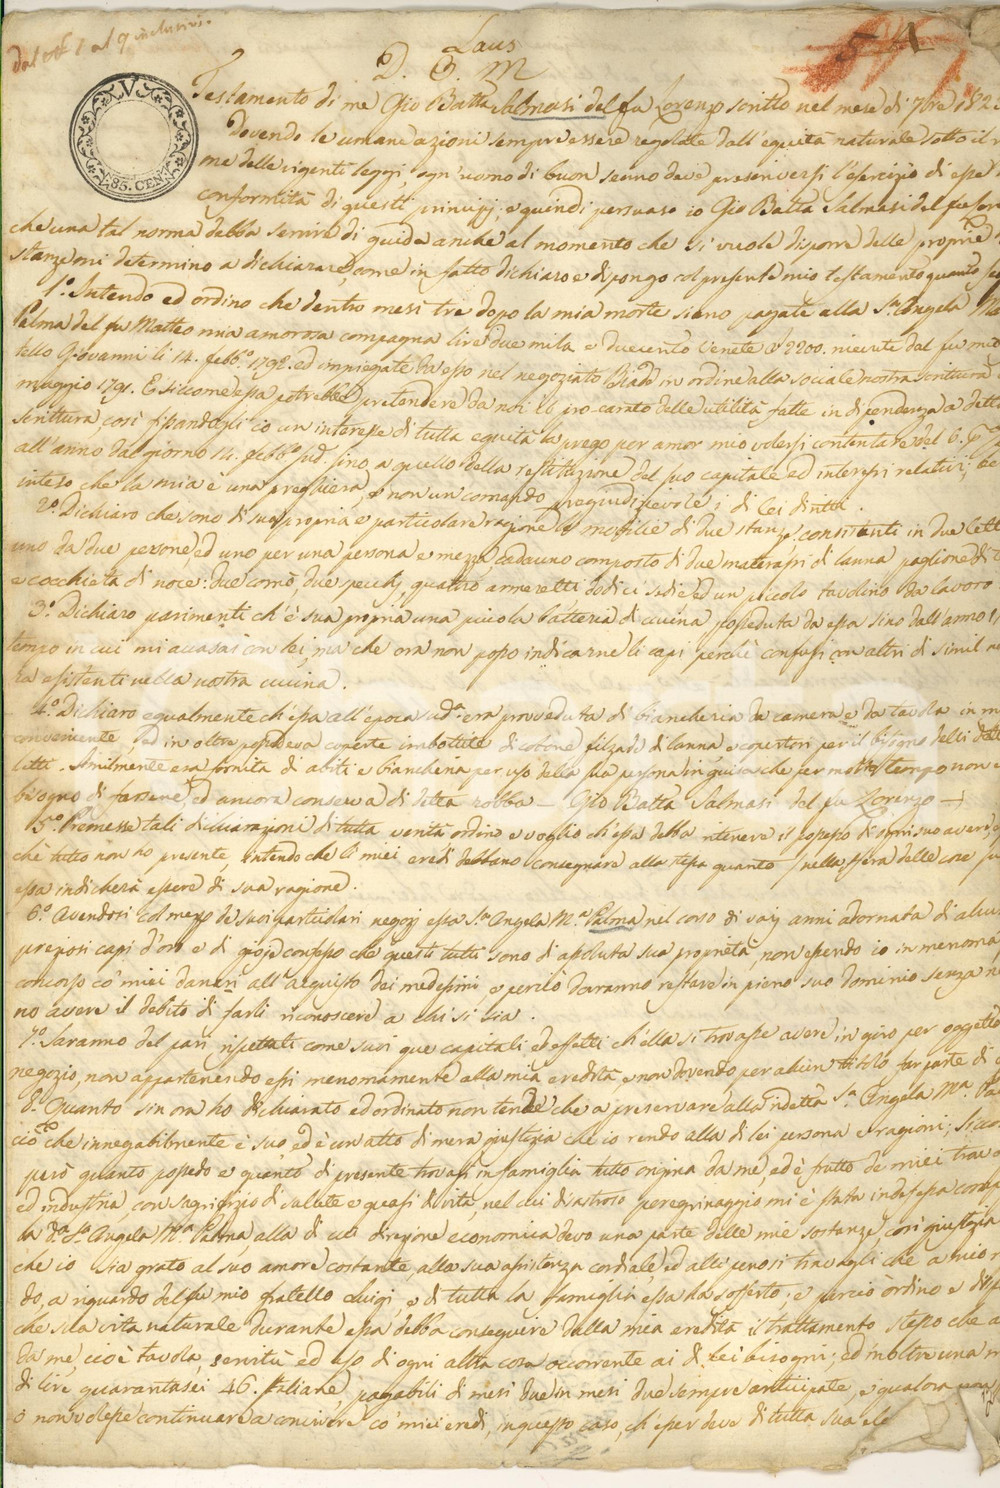 dal N.º 1 al 9 inclusivi.
54
Laus
D. O. M
V
85. CEN
Testamento di me Gio Batta Salmasi del fu Lorenzo scritto nel mese di 7bre 182
Dovendo le umane azioni sempre essere regolate dall'equità naturale sotto il
me delle vigenti leggi, ogn'uomo di buon senno deve prescriversi l'esercizio di esse
conformità di questi principj; e quindi persuaso io Gio Batta Salmasi del fu Loren
che una tal norma debba servire di guida anche al momento che si vuole disporre delle proprie
stanze mi determino a dichiarare, come in fatto dichiaro e dispongo col presente mio testamento quanto seg
1.º Intendo ed ordino che dentro mesi tre dopo la mia morte siano pagate alla S.ra Angela Ma
Palma del fu Matteo mia amorosa compagna lire due mila e duecento Venete £ 2200. ricevute dal fu mio
tello Giovanni li 14. Febb.º 1792. ed impiegate da esso nel negoziato Biade in ordine alla sociale nostra scrittura
maggio 1791. E siccome essa potrebbe pretendere da noi il pro-carato delle utilità fatte in dipendenza a detta
scrittura, così fissandogli io un interesse di tutta equità la prego per amor mio volersi contentare del 6. p%
all'anno dal giorno 14. Febb.º sud.º sino a quello della restituzione del suo capitale ed interessi relativi; be
inteso che la mia è una preghiera, e non un comando pregiudizievole i di lei diritti.
2.º Dichiaro che sono di sua propria e particolare ragione le mobilie di due stanze consistenti in due Letti
uno da due persone, ed uno per una persona e mezza cadauno composto di due materassi di lanna paglione di
e cocchietta di noce: due comò, due specchj, quattro armeretti dodici sedie ed un piccolo tavolino da lavoro
3.º Dichiaro parimenti ch'è sua propria una piccola batteria di cucina posseduta da essa sino dall'anno 1
tempo in cui mi accasai con lei, ma che ora non posso indicarne li capi perchè confusi con altri di simil na
ra esistenti nella nostra cucina.
4.º Dichiaro egualmente ch'essa all'epoca sud.a era provveduta di biancheria da camera e da tavola in m
conveniente, ed in oltre possedeva coperte imbottite di cotone filzade di lanna e copertori per il bisogno delli detti
letti. Similmente era fornita di abiti e biancheria per uso della sua persona in guisa che per molto tempo non e
bisogno di farsene, ed ancora conserva di detta robba — Gio Batta Salmasi del fu Lorenzo —
5.º Premesse tali dichiarazioni di tutta verità ordino e voglio ch'essa debba ritenere il possesso di ogni suo avere, p
chè tutto non ho presente, intendo che li miei eredi debbano consegnare alla stessa quanto nella sfera delle cose su
essa indicherà essere di sua ragione.
6.º Avendosi col mezzo de suoi particolari negozj essa S.ra Angela M.a Palma nel corso di varj anni adornata di alcun
preziosi capi d'oro e di gioje confesso che questi tutti sono di assoluta sua proprietà, non essendo io in menoma
concorso co' miei danari all'acquisto dei medesimi, e perciò dovranno restare in pieno suo dominio senza ne
no avere il debito di farli riconoscere a chi si sia.
7.º Saranno del pari, rispettati come suoi que capitali ed effetti ch'ella si trovasse avere in giro per oggetto
negozio, non appartenendo essi menomamente alla mia eredità e non dovendo per alcun titolo far parte di
8.º Quanto sin ora ho dichiarato ed ordinato non tende che a preservare alla ridetta S.ra Angela M.a Pal
ciò che innegabilmente è suo, ed è un atto di mera giustizia che io rendo alla di lei persona e ragioni; Sicco
però quanto possedo e quanto di presente trovasi in famiglia tutto origina da me, ed è frutto de miei trava
ed industria, con sagrifizio di salute e quasi di vita, nel cui disastroso peregrinaggio mi è stata indefessa comp
la d.a S.ra Angela M.a Palma, alla di cui direzione economica devo una parte delle mie sostanze, così giustizia
che io sia grato al suo amore costante, alla sua assistenza cordiale, ed alli penosi travagli che a mio r
do, a riguardo del fu mio fratello Luigi, e di tutta la famiglia essa ha sofferto, e perciò ordino e disp
che sua vita naturale durante essa debba conseguire dalla mia eredità il trattamento stesso che a
da me, cioè tavola, servitù ed uso di ogni altra cosa occorrente ai di lei bisogni; ed inoltre una m
di lire quarantasei 46. Italiane, pagabili di mesi due in mesi due sempre anticipate, e qualora
o non volesse continuare a convivere co' miei eredi, in questo caso, ch'esser deve di tutta sua ele